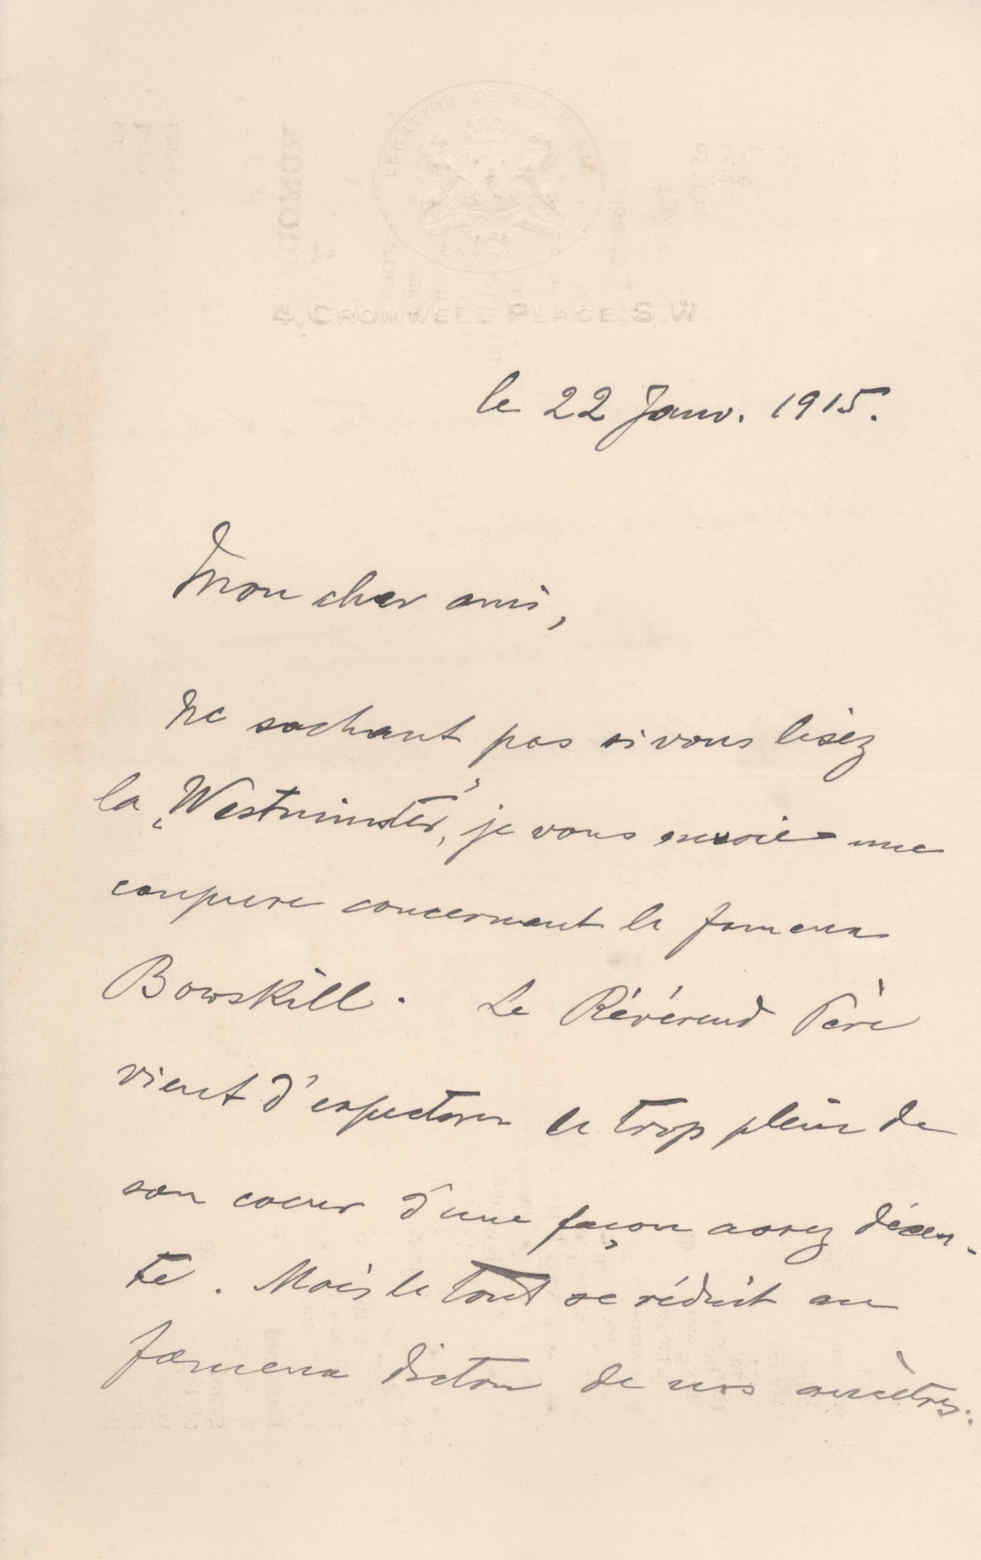 4, CROMWELL PLACE. S.W
le 22 Janv. 1915.
Mon cher ami,
Ne sachant pas si vous lisez
la „Westminster", je vous envoie une
coupure concernant le fameux
Bowskill. Le Révérend Père
vient d'expectorer le trop plein de
son coeur d'une façon assez décen-
te. Mais le tout se réduit au
fameux dicton de nos ancêtres: